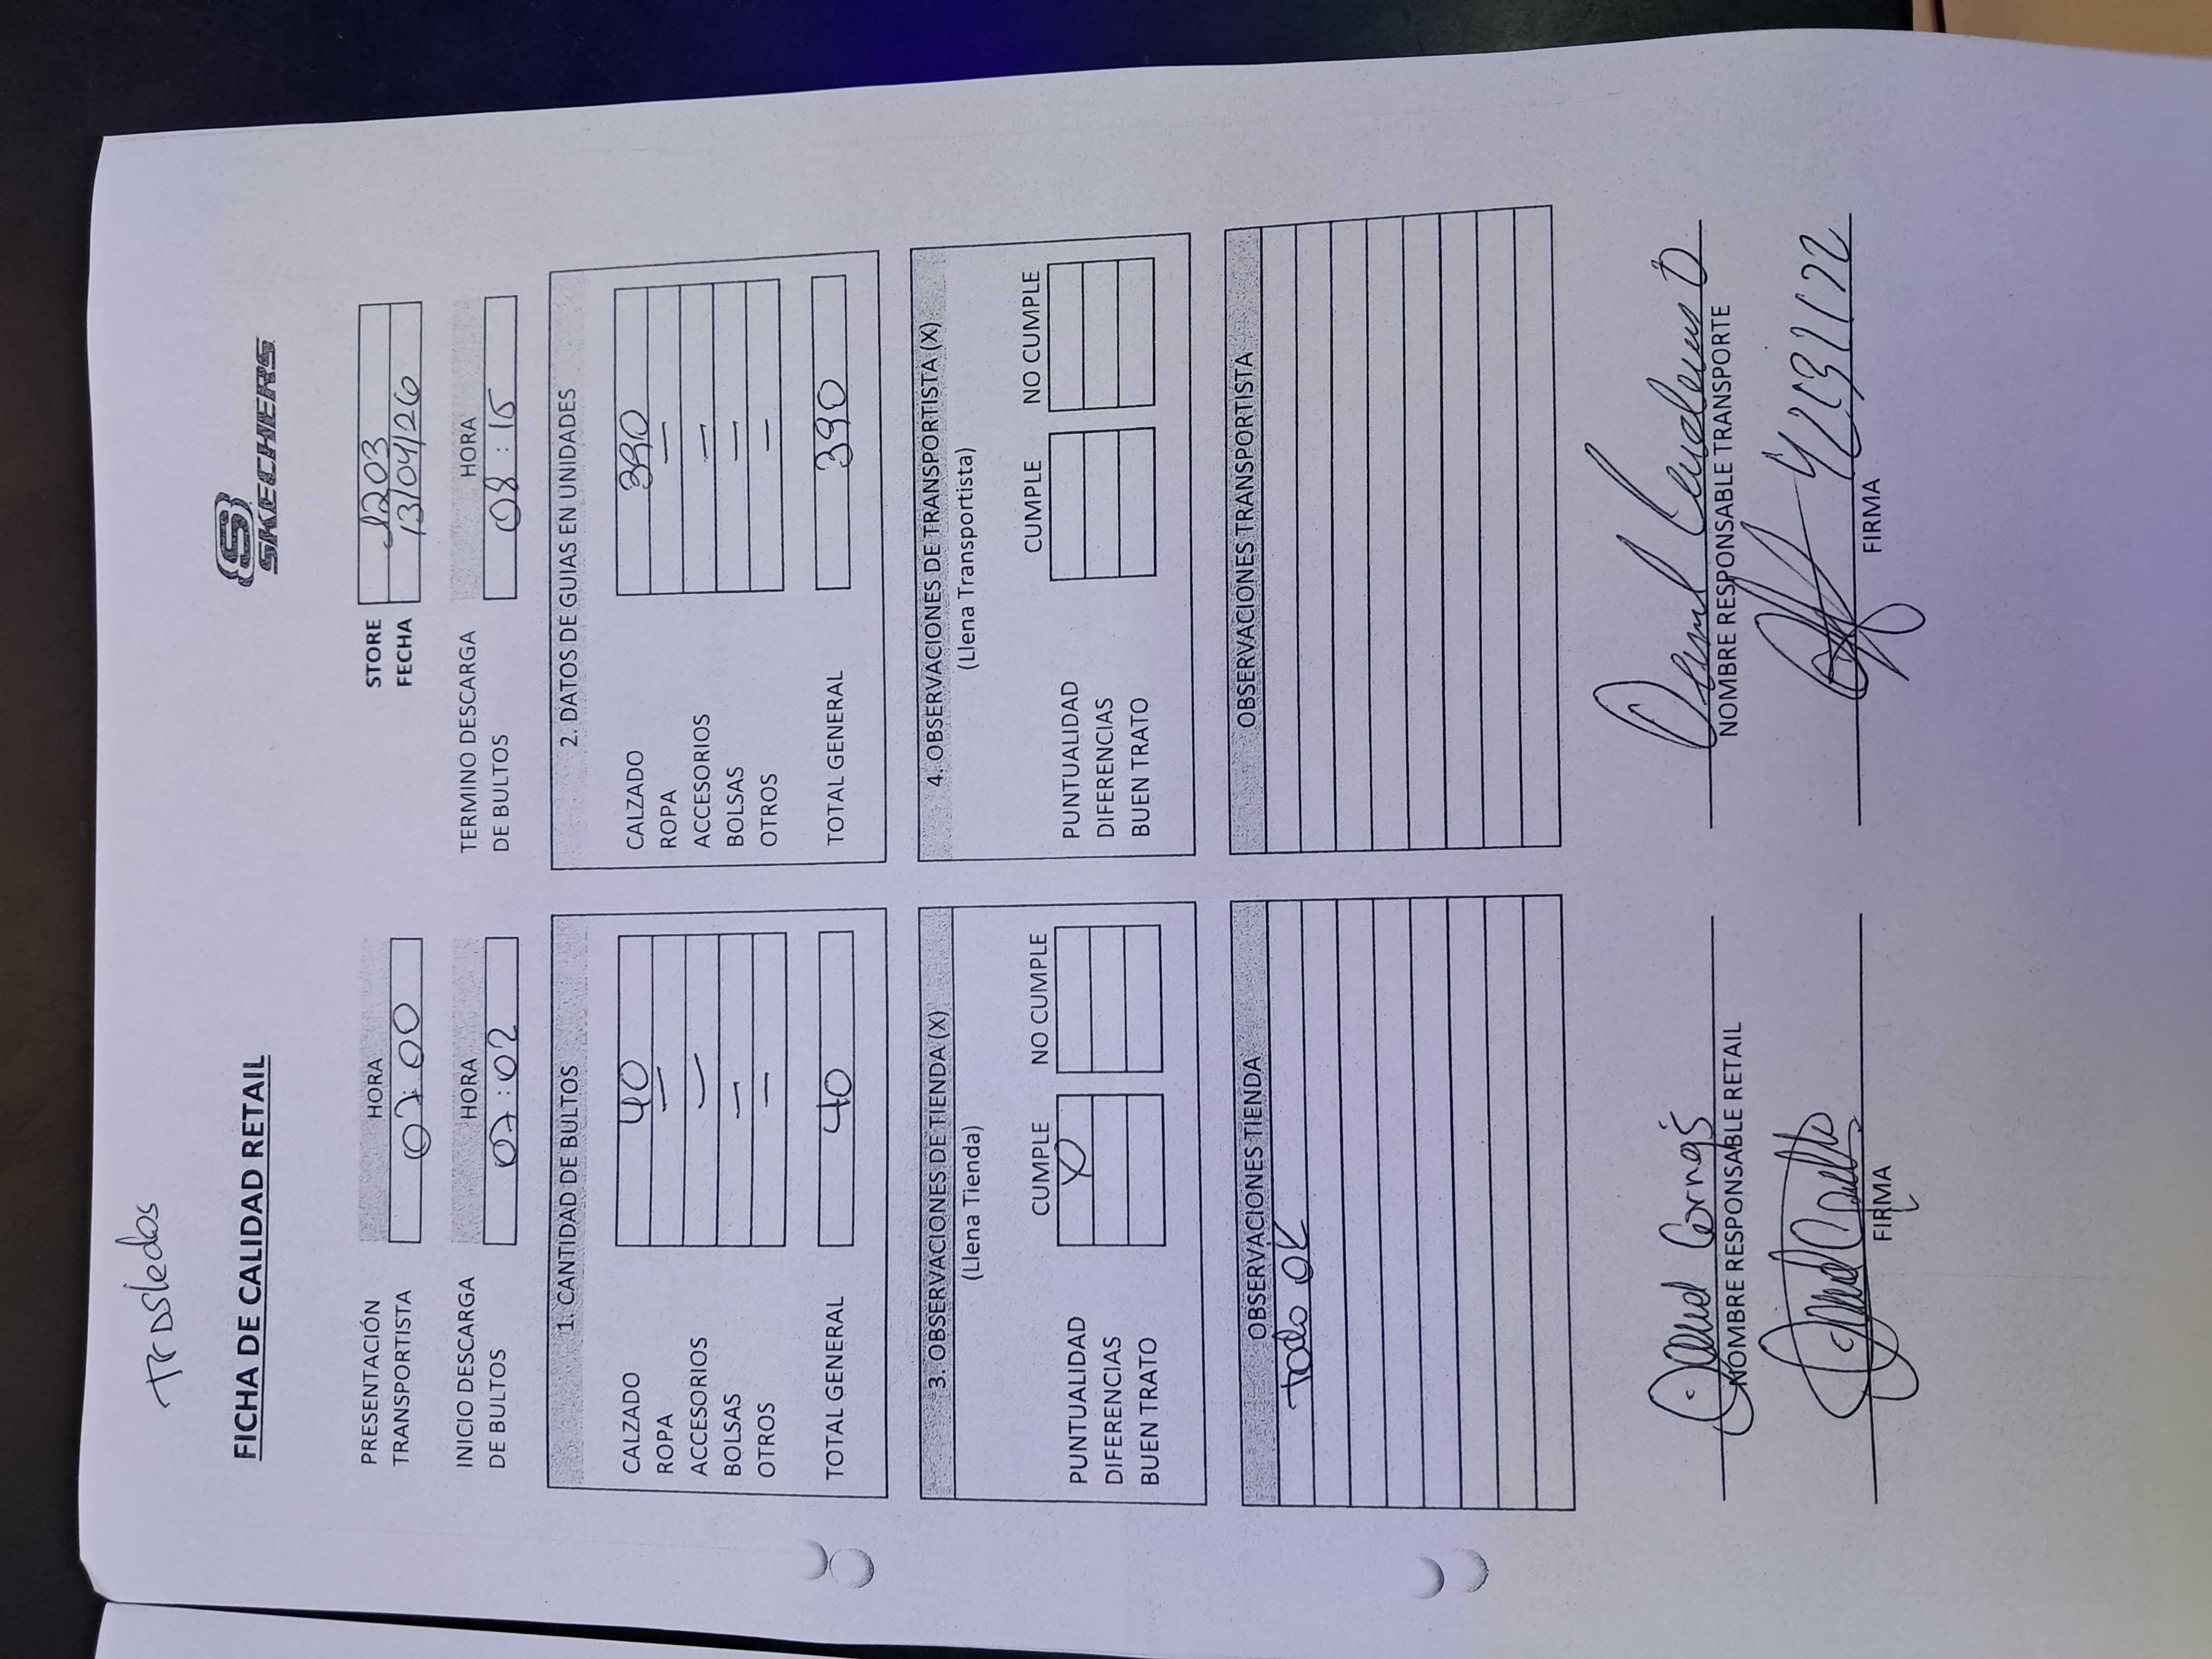 Trasledos
FICHA DE CALIDAD RETAIL
SKECHERS
PRESENTACIÓN TRANSPORTISTA
HORA
07:00
STORE 1203
FECHA 13/04/26
INICIO DESCARGA DE BULTOS
HORA
07:02
TERMINO DESCARGA DE BULTOS
HORA
08:15
1. CANTIDAD DE BULTOS
CALZADO 40
ROPA –
ACCESORIOS –
BOLSAS –
OTROS –
TOTAL GENERAL 40
2. DATOS DE GUIAS EN UNIDADES
CALZADO 390
ROPA –
ACCESORIOS –
BOLSAS –
OTROS –
TOTAL GENERAL 390
3. OBSERVACIONES DE TIENDA (X)
(Llena Tienda)
CUMPLE NO CUMPLE
PUNTUALIDAD X
DIFERENCIAS
BUEN TRATO
4. OBSERVACIONES DE TRANSPORTISTA (X)
(Llena Transportista)
CUMPLE NO CUMPLE
PUNTUALIDAD
DIFERENCIAS
BUEN TRATO
OBSERVACIONES TIENDA
todo OK
OBSERVACIONES TRANSPORTISTA
NOMBRE RESPONSABLE RETAIL
FIRMA
NOMBRE RESPONSABLE TRANSPORTE
FIRMA